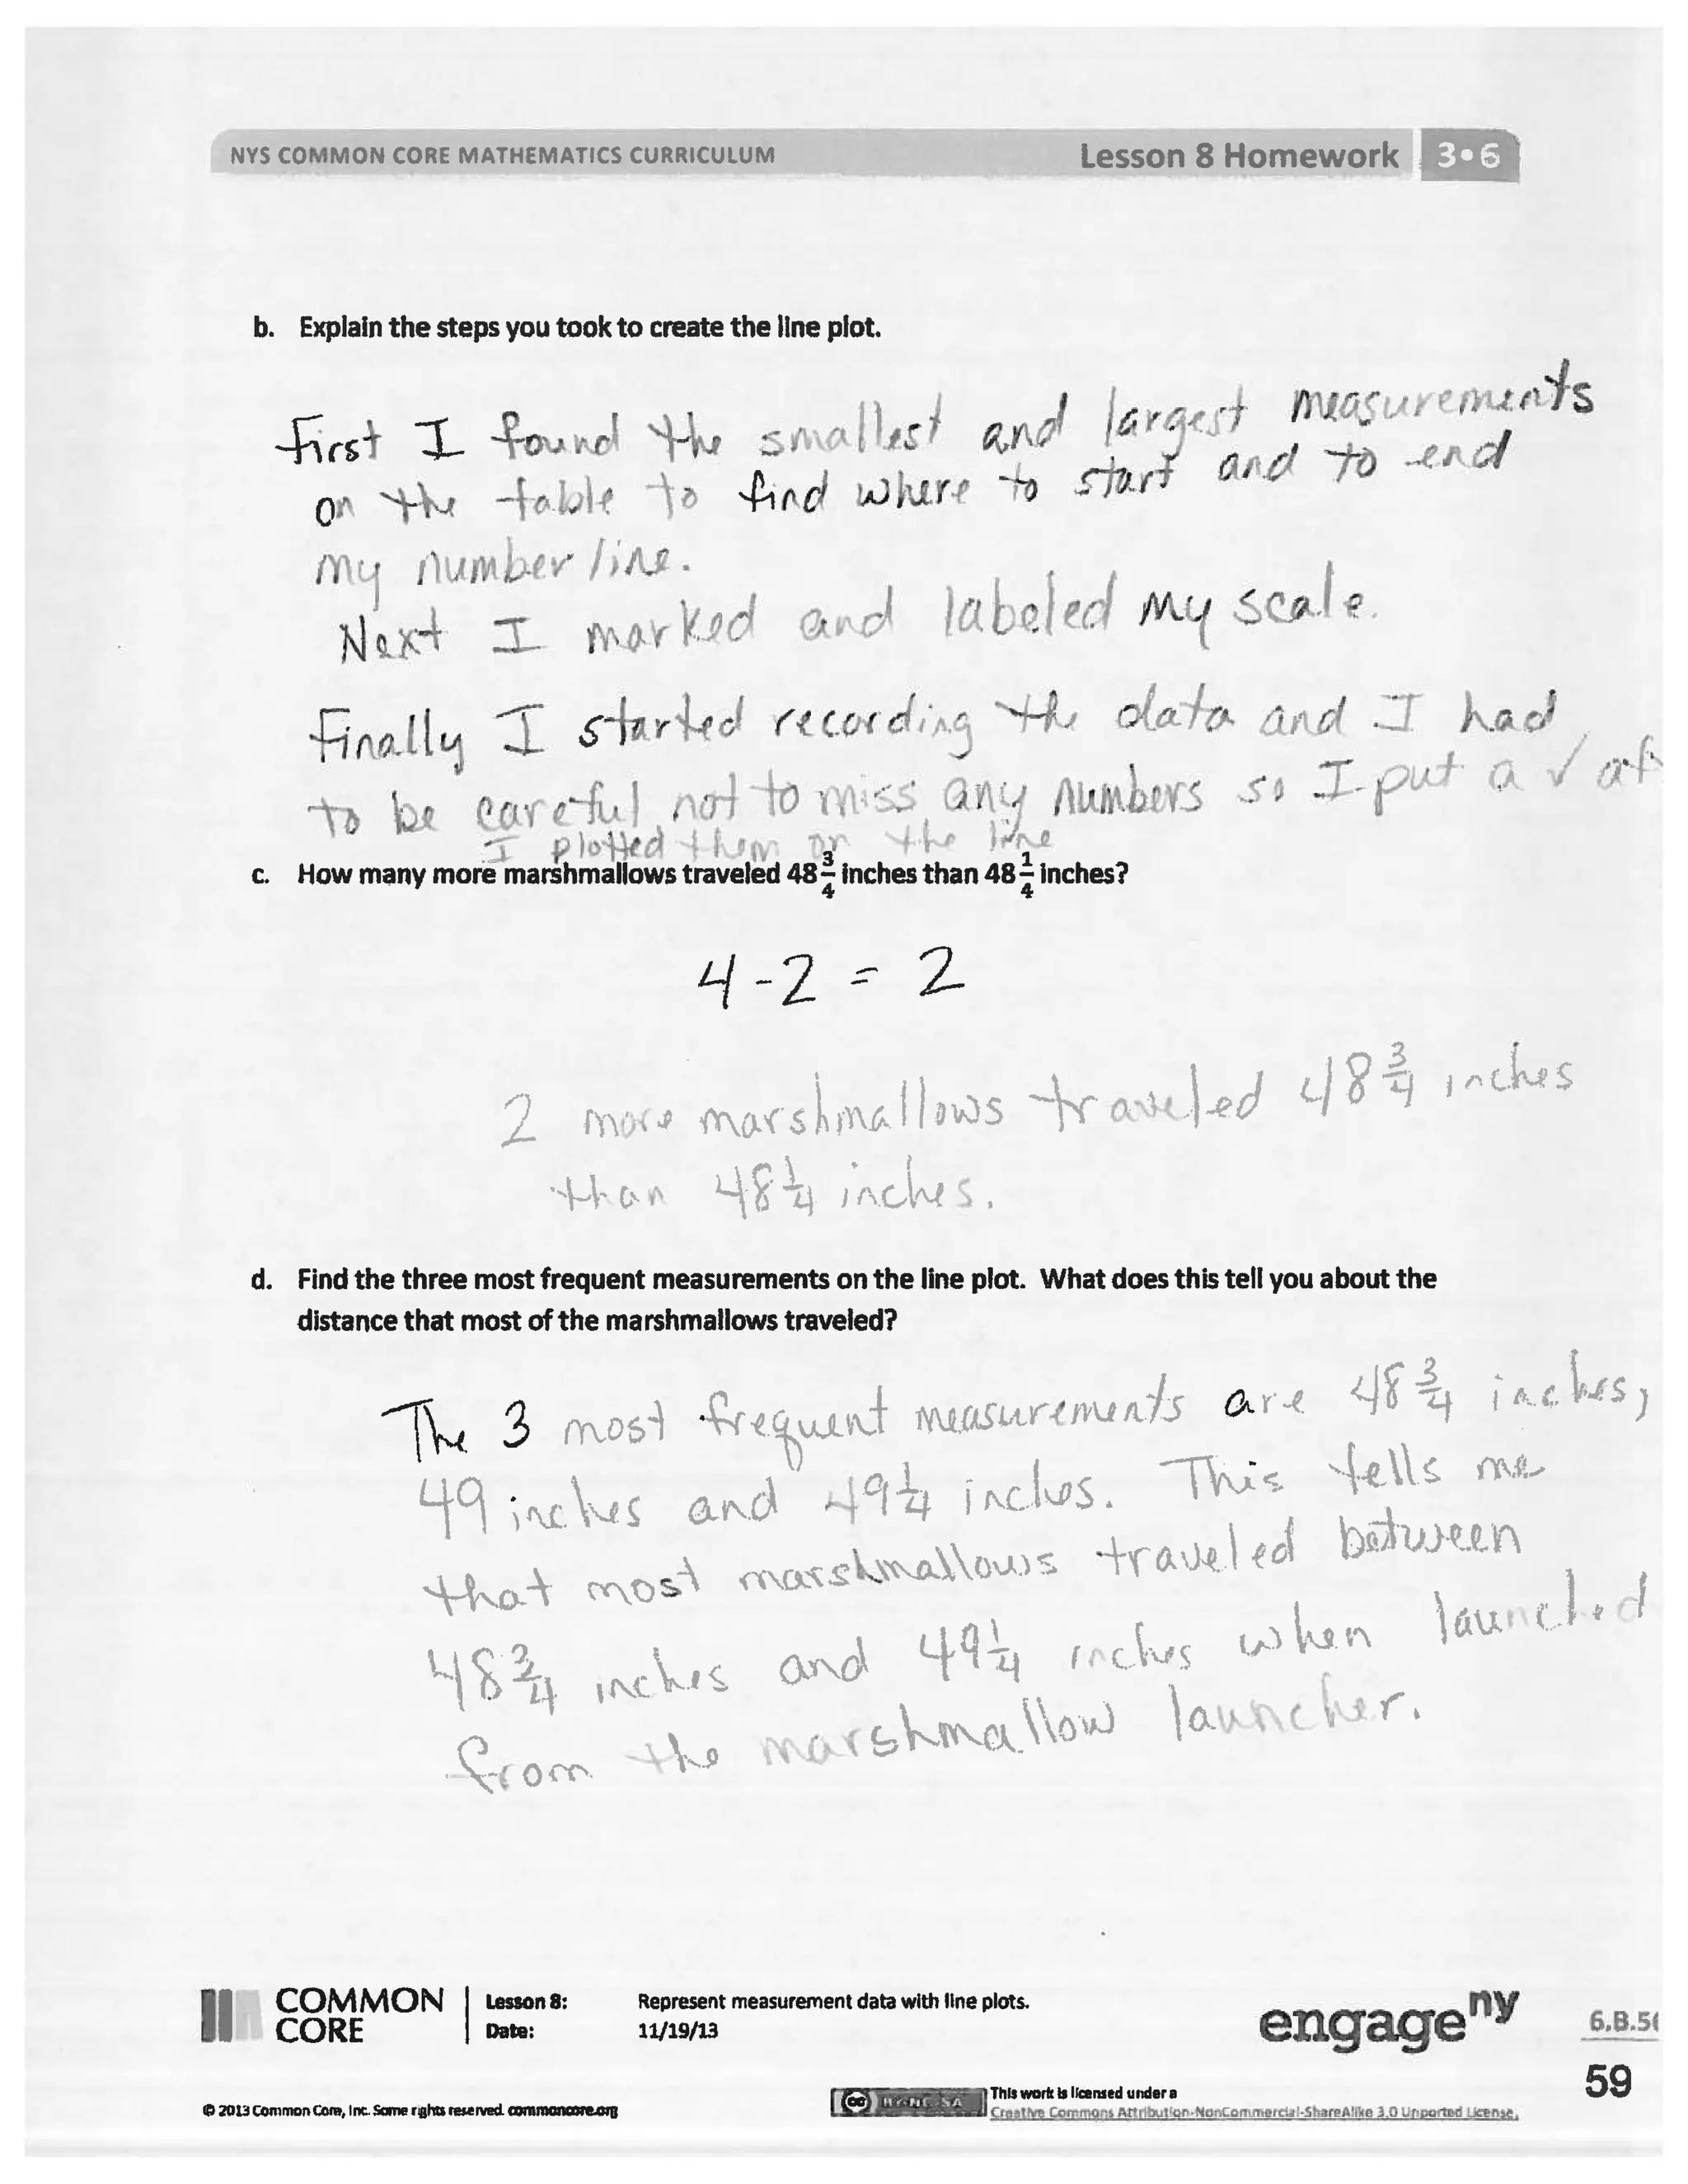 NYS COMMON CORE MATHEMATICS CURRICULUM Lesson 8 Homework 3•6
b. Explain the steps you took to create the line plot.
First I found the smallest and largest measurements
on the table to find where to start and to end
my number line.
Next I marked and labeled my scale.
Finally I started recording the data and I had
to be careful not to miss any numbers so I put a ✓ aft
I plotted them on the line
c. How many more marshmallows traveled 48 3/4 inches than 48 1/4 inches?
4 - 2 = 2
2 more marshmallows traveled 48 3/4 inches
than 48 1/4 inches.
d. Find the three most frequent measurements on the line plot. What does this tell you about the
distance that most of the marshmallows traveled?
The 3 most frequent measurements are 48 3/4 inches,
49 inches and 49 1/4 inches. This tells me
that most marshmallows traveled between
48 3/4 inches and 49 1/4 inches when launched
from the marshmallow launcher.
COMMON CORE
Lesson 8: Represent measurement data with line plots.
Date: 11/19/13
engage ny
6.B.5
59
© 2013 Common Core, Inc. Some rights reserved. commoncore.org
cc BY-NC-SA
This work is licensed under a
Creative Commons Attribution-NonCommercial-ShareAlike 3.0 Unported License.